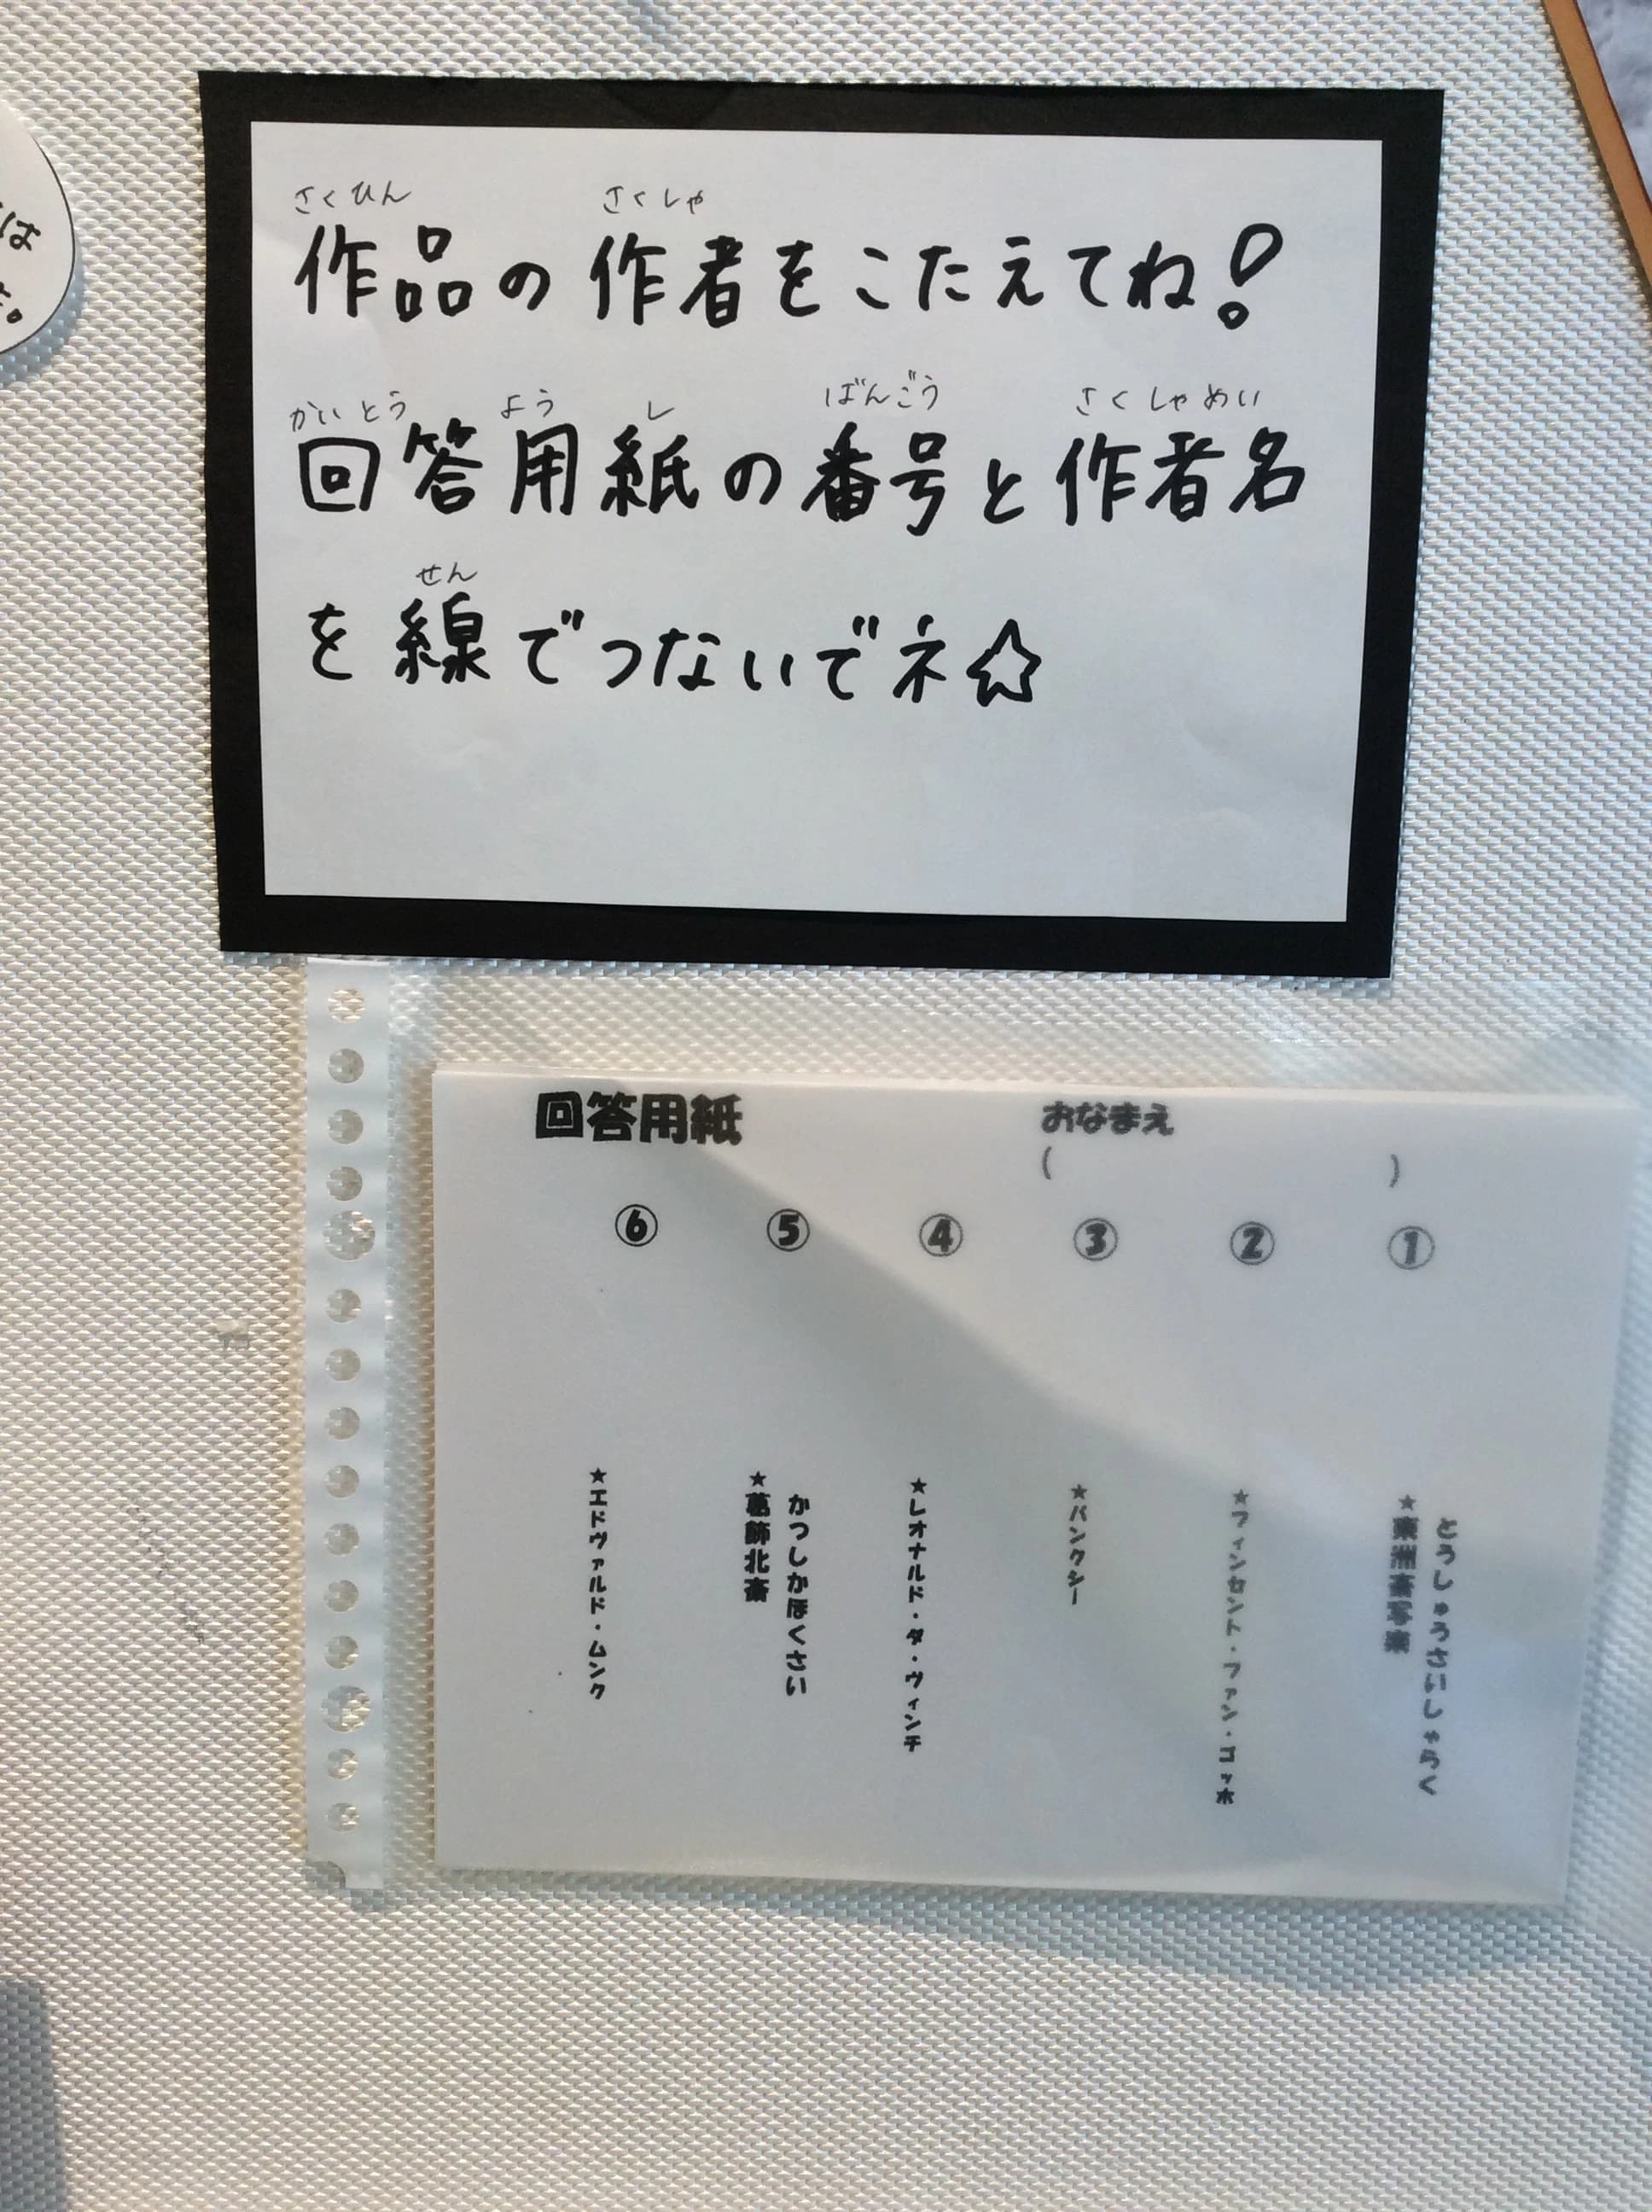 さくひん さくしゃ
作品の作者をこたえてね!
かいとう よう し ばんごう さくしゃめい
回答用紙の番号と作者名
せん
を線でつないでネ☆
は
回答用紙
おなまえ
( )
①
②
③
④
⑤
⑥
とうしゅうさいしゃらく
★東洲斎写楽
★フィンセント・ファン・ゴッホ
★バンクシー
★レオナルド・ダ・ヴィンチ
かつしかほくさい
★葛飾北斎
★エドヴァルド・ムンク